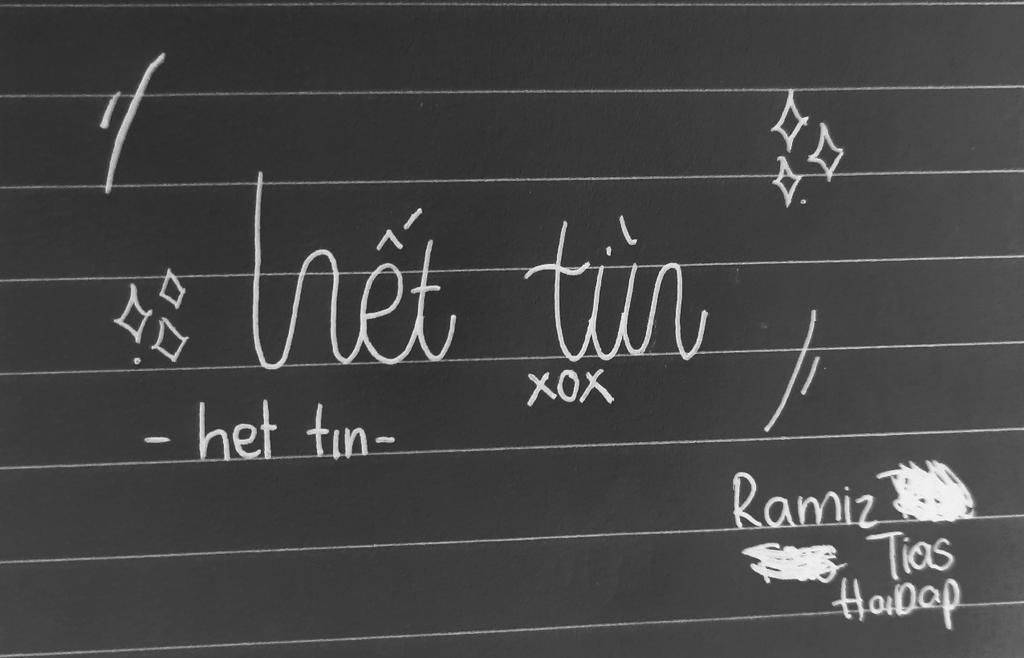 hết tìn
xox
- het tın -
Ramiz
Tias
HaiDap